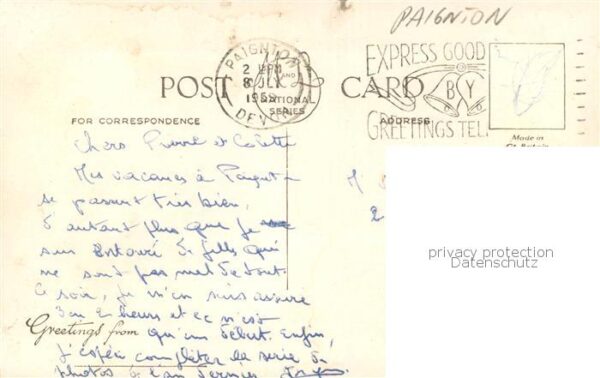 PAIGNTON
PAIGNTON
2 PM
8 JLY
DEVON
EXPRESS GOOD
BY
GREETINGS TEL
POST CARD
AND
NATIONAL
SERIES
FOR CORRESPONDENCE
ADDRESS
Made in
Gt. Britain
Chers Pierre et Colette
Mes vacances à Paignton
se passent très bien,
d'autant plus que je
suis entouré de filles qui
ne sont pas mal du tout.
Ce soir, je m'en suis assuré
3 en 2 heures et ce n'est
Greetings from
qu'un début. Enfin,
j'espère compléter la série de
photos de l'an dernier.
privacy protection
Datenschutz